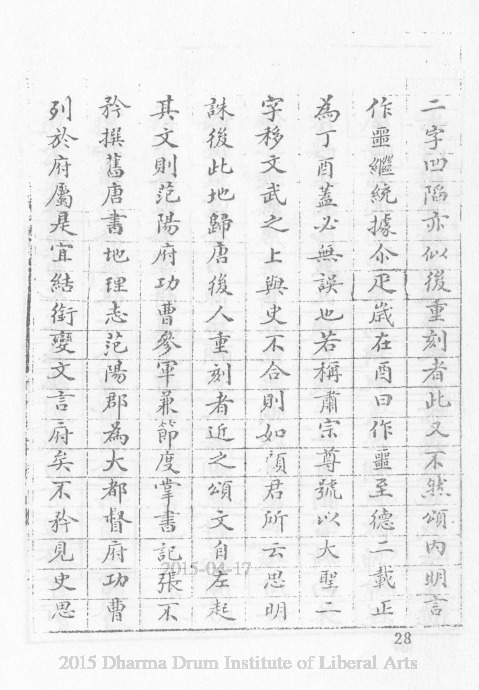 二字凹陷亦似後重刻者此又不然頌內明言
作噩繼統據尒疋歲在酉曰作噩至德二載正
為丁酉蓋必無誤也若稱肅宗尊號以大聖二
字移文武之上與史不合則如顧君所云思明
誅後此地歸唐後人重刻者近之頌文自左起
其文則范陽府功曹參軍兼節度掌書記張不
矜撰舊唐書地理志范陽郡為大都督府功曹
列於府屬是宜結銜變文言府矣不矜見史思
2015-04-17
28
2015 Dharma Drum Institute of Liberal Arts